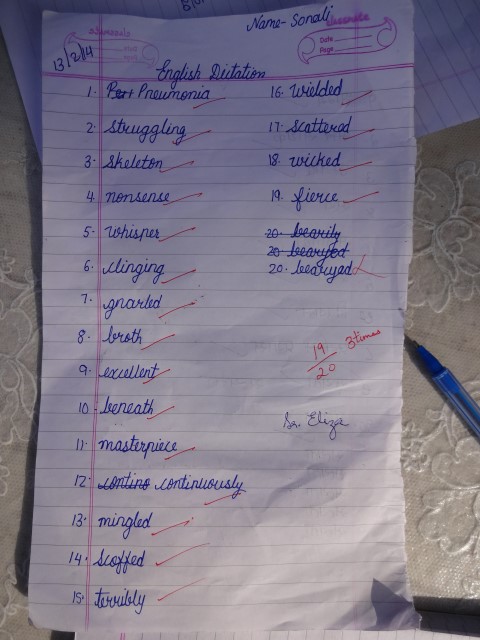 Name- Sonali
classmate
Date
Page
13/2/14
English Dictation
1. Pneumonia
2. struggling
3. skeleton
4. nonsense
5. whisper
6. clinging
7. gnarled
8. broth
9. excellent
10. beneath
11. masterpiece
12. contino continuously
13. mingled
14. scoffed
15. terribly
16. wielded
17. scattered
18. wicked
19. fierce
20. bearily
20. bearyed
20. bearuyed
19/20
3 times
Sr. Eliza